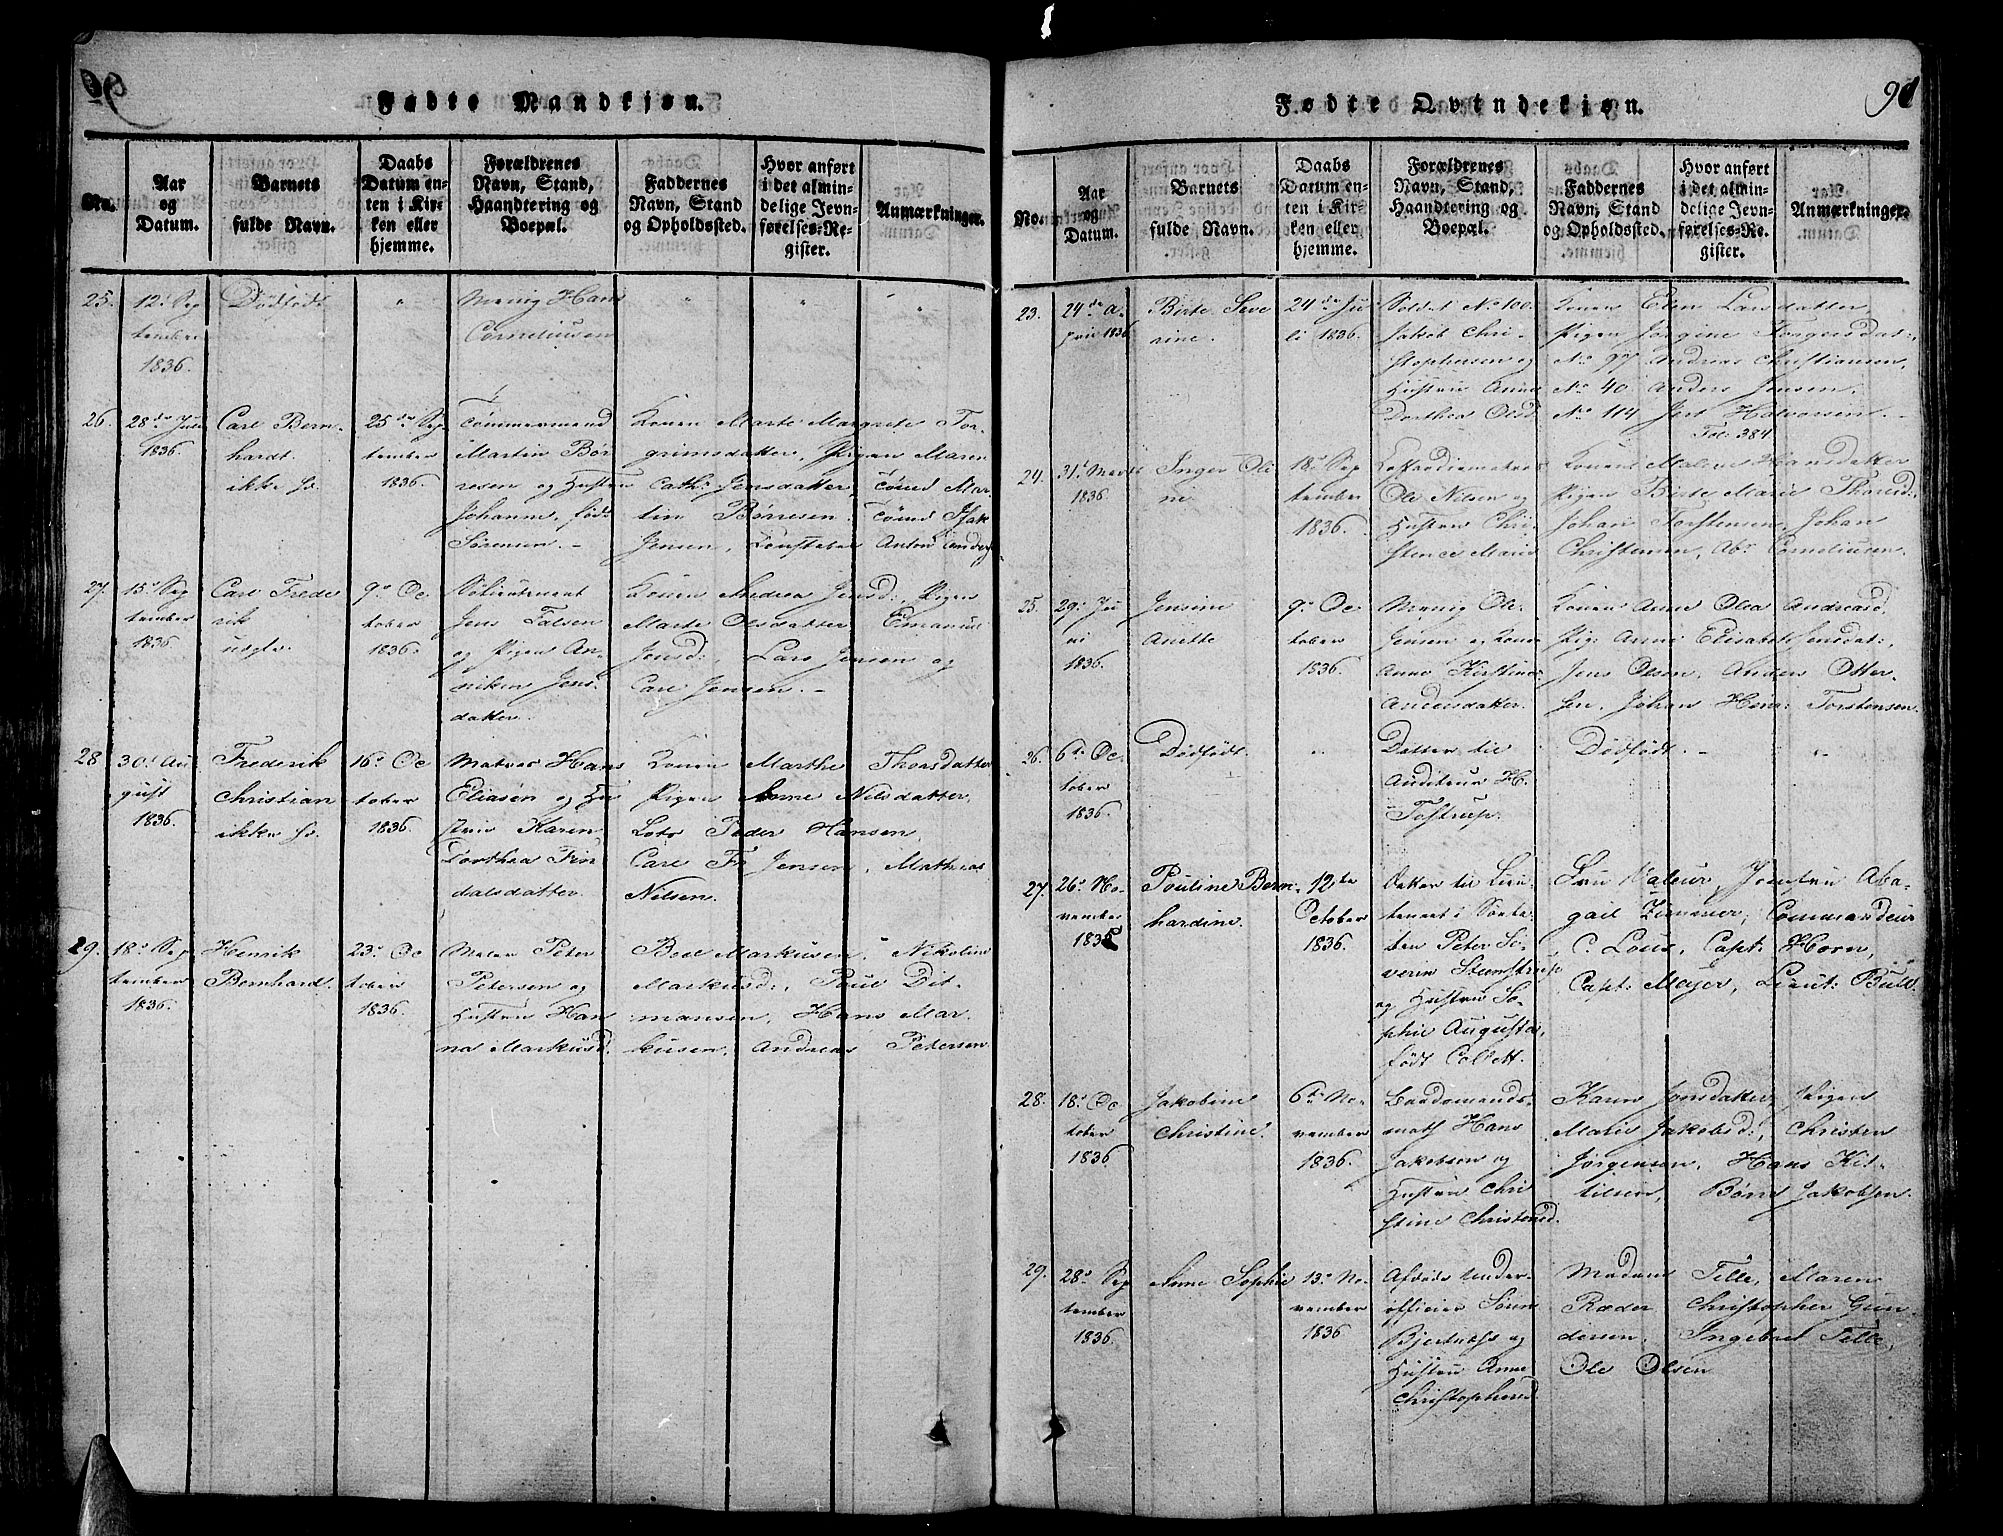 Fødte Mandkjøn.
No.
Aar
og
Datum.
Barnets
fulde Navn.
Daabs
Datum en-
ten i Kir-
ken eller
hjemme.
Forældrenes
Navn, Stand,
Haandtering og
Boepæl.
Faddernes
Navn, Stand
og Opholdssted.
Hvor anført
i det almin-
delige Jevn-
førelses-Re-
gister.
Anmærkninger.
25.
12. Sep
tember
1836.
Dødfødt
"
Menig Hans
Corneliussen
"
"
"
26.
28de Juli
1836.
Carl Bern-
hardt.
ikke
25de Sep
tember
1836.
Tömmermand
Martin Bör-
resen og Hustru
Johanne, födt
Sörensen. –
Konen Marte Margrete Tor-
grimsdatter, Pigen Maren
Cath: Jensdatter, Tömd Mar-
tin Börresen, Tömd Isak
Jensen, Konstabel Anton Anders
27.
15. Sep
tember
1836
Carl Frede
rik
uegte.
9. Oc
tober
1836.
Sölieutenant
Jens Falsen
og Pigen An-
niken Jens-
datter.
Konen Andrea Jensd:, Pigen
Marte Olsdatter Emanuel
Jensd:, Lars Jensen og
Carl Jensen. –
28
30. Au
gust
1836.
Frederik
Christian
ikke
16. Oc
tober
1836.
Matros Hans
Eliasen og Hu
stru Karen
Dorthea Fin
dalsdatter.
Konen Marthe Thorsdatter
Pigen Anne Nilsdatter,
Lots Peder Hansen,
Carl Fr Jensen, Mathias
Nilsen.
29.
18. Sep
tember
1836.
Henrik
Bernhardt.
23. Oc
tober
1836.
Maler Peter
Petersen og
Hustru Han
na Markusd.
Bed Markusen, Nikoline
Markusd:, Poul Dit-
mansen, Hans Mar-
kusen, Andreas Petersen
91
Fødte Qvindekjøn.
No.
Aar
og
Datum.
Barnets
fulde Navn.
Daabs
Datum en-
ten i Kir-
ken eller
hjemme.
Forældrenes
Navn, Stand,
Haandtering og
Boepæl.
Faddernes
Navn, Stand
og Opholdssted.
Hvor anført
i det almin-
delige Jevn-
førelses-Re-
gister.
Anmærkninger.
23.
24de A-
pril 1836
Birte Seve
rine.
24de Ju
li 1836.
Soldat No 100.
Jakob Chri-
stophersen og
Hustru Anne
Dorthea Olsd.
Konen Elen Larsdatter,
Pigen Jörgine Torgersdat:,
No 97 Andreas Christiansen,
No 40 Anders Jensen,
No 114 Jert Halvorsen. –
Fol: 384
24.
31. Marts
1836.
Inger Oli
ne.
18. Sep
tember
1836.
Ole Nilsen og
Hustru Chri-
stence Marie
Konen Malene Hansdatter
Pigen Birte Marie Thorsd:,
Johan Torstensen, Johan
Christensen, Abr Corneliusen.
25.
29. Ju
ni
1836.
Jensine
Anette
9. Oc-
tober
1836.
Menig Ole
Jensen og Kone
Anne Kirstine
Andersdatter.
Konen Anne Olea Andreasd.
Pig: Anne Elisabet Jensdat:,
Jens Olsen, Anders Otter-
sen, Johan Hen: Torstensen.
26.
6te Oc-
tober
1836.
Dödfödt.
"
Datter til
Auditeur H.
Tostrup.
Dödfödt. –
"
27.
26. No-
vember
1835
Pouline Bern-
hardine.
12te
October
1836.
Datter til Lieu-
tenant i Söeta-
ten Peter Se-
verin Steenstrup
og Hustru So-
phie Augusta,
födt Collett.
Fru Valeur, Jomfru Aba-
gail Zimmer, Commandeur
C Lous, Capt: Horn,
Capt: Meyer, Lieut: Bull.
28.
18. Oc
tober
1836
Jakobine
Christine.
6te No-
vember
1836.
Baadsmands-
math Hans
Jakobsen og
Hustru Chri
stine Christensd.
Karen Jonsdatter, Pigen
Marie Jakobsd:, Christen
Jörgensen, Hans Kit-
tilsen, Börre Jakobsen.
29.
28. Sep
tember
1836.
Anne Sophie
13. No-
vember
1836
Afdöde Under-
officier Sören
Bjertnæss og
Hustru Anne
Christophersd.
Madam Telle, Maren
Ræder Christopher Gun-
dersen, Ingebret Telle,
Ole Olsen